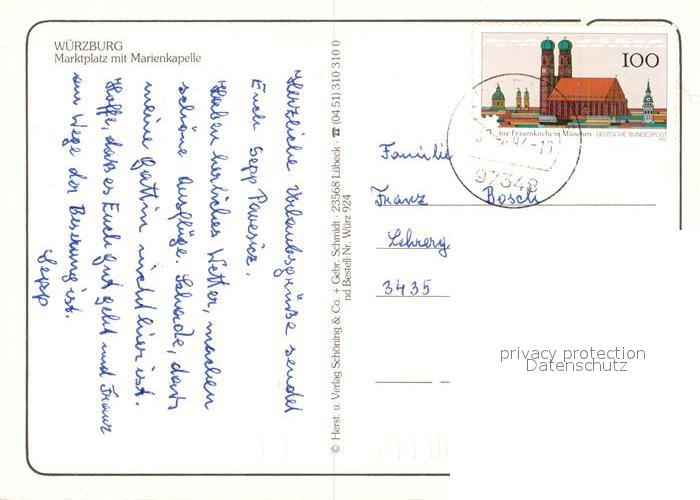 WÜRZBURG
Marktplatz mit Marienkapelle
Herzliche Urlaubsgrüße sendet
Euch Sepp
Haben herrliches Wetter, machen
schöne Ausflüge. Schade, dass
meine Gattin nicht hier ist.
Hoffe, daß es Euch gut geht und Franz
am Wege der Besserung ist.
Sepp
© Herst. u. Verlag Schöning & Co. + Gebr. Schmidt · 23568 Lübeck · ☎ (04 51) 310 310 0
nd Bestell-Nr. Würz 924
100
zur Frauenkirche in München DEUTSCHE BUNDESPOST
97348
Familie
Franz Bosch
Lehrerg
3435
privacy protection
Datenschutz